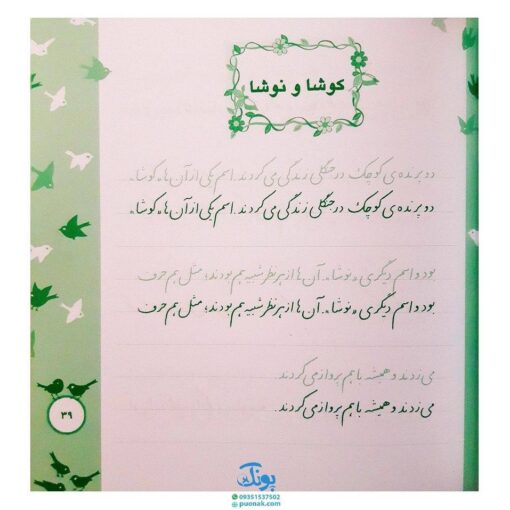 کوشا و نوشا
دو پرنده‌ی کوچک در جنگلی زندگی می‌کردند. اسم یکی از آن‌ها «کوشا»
دو پرنده‌ی کوچک در جنگلی زندگی می‌کردند. اسم یکی از آن‌ها «کوشا»
بود و اسم دیگری «نوشا». آن‌ها از هر نظر شبیه هم بودند؛ مثل هم حرف
بود و اسم دیگری «نوشا». آن‌ها از هر نظر شبیه هم بودند؛ مثل هم حرف
می‌زدند و همیشه با هم پرواز می‌کردند.
می‌زدند و همیشه با هم پرواز می‌کردند.
۳۹
پونک
09351537502
puonak.com